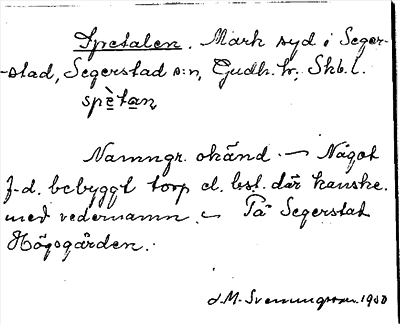 Spetalen. Mark syd i Seger-
-stad, Segerstad s:n, Gudh. hr, Skb. l.
spètan
Namngr. okänd. — Något
f.d. bebyggt torp el. lsst. där kanske.
med vedernamn. — På Segerstad
Högsgården.
J.M. Svenningsson. 19